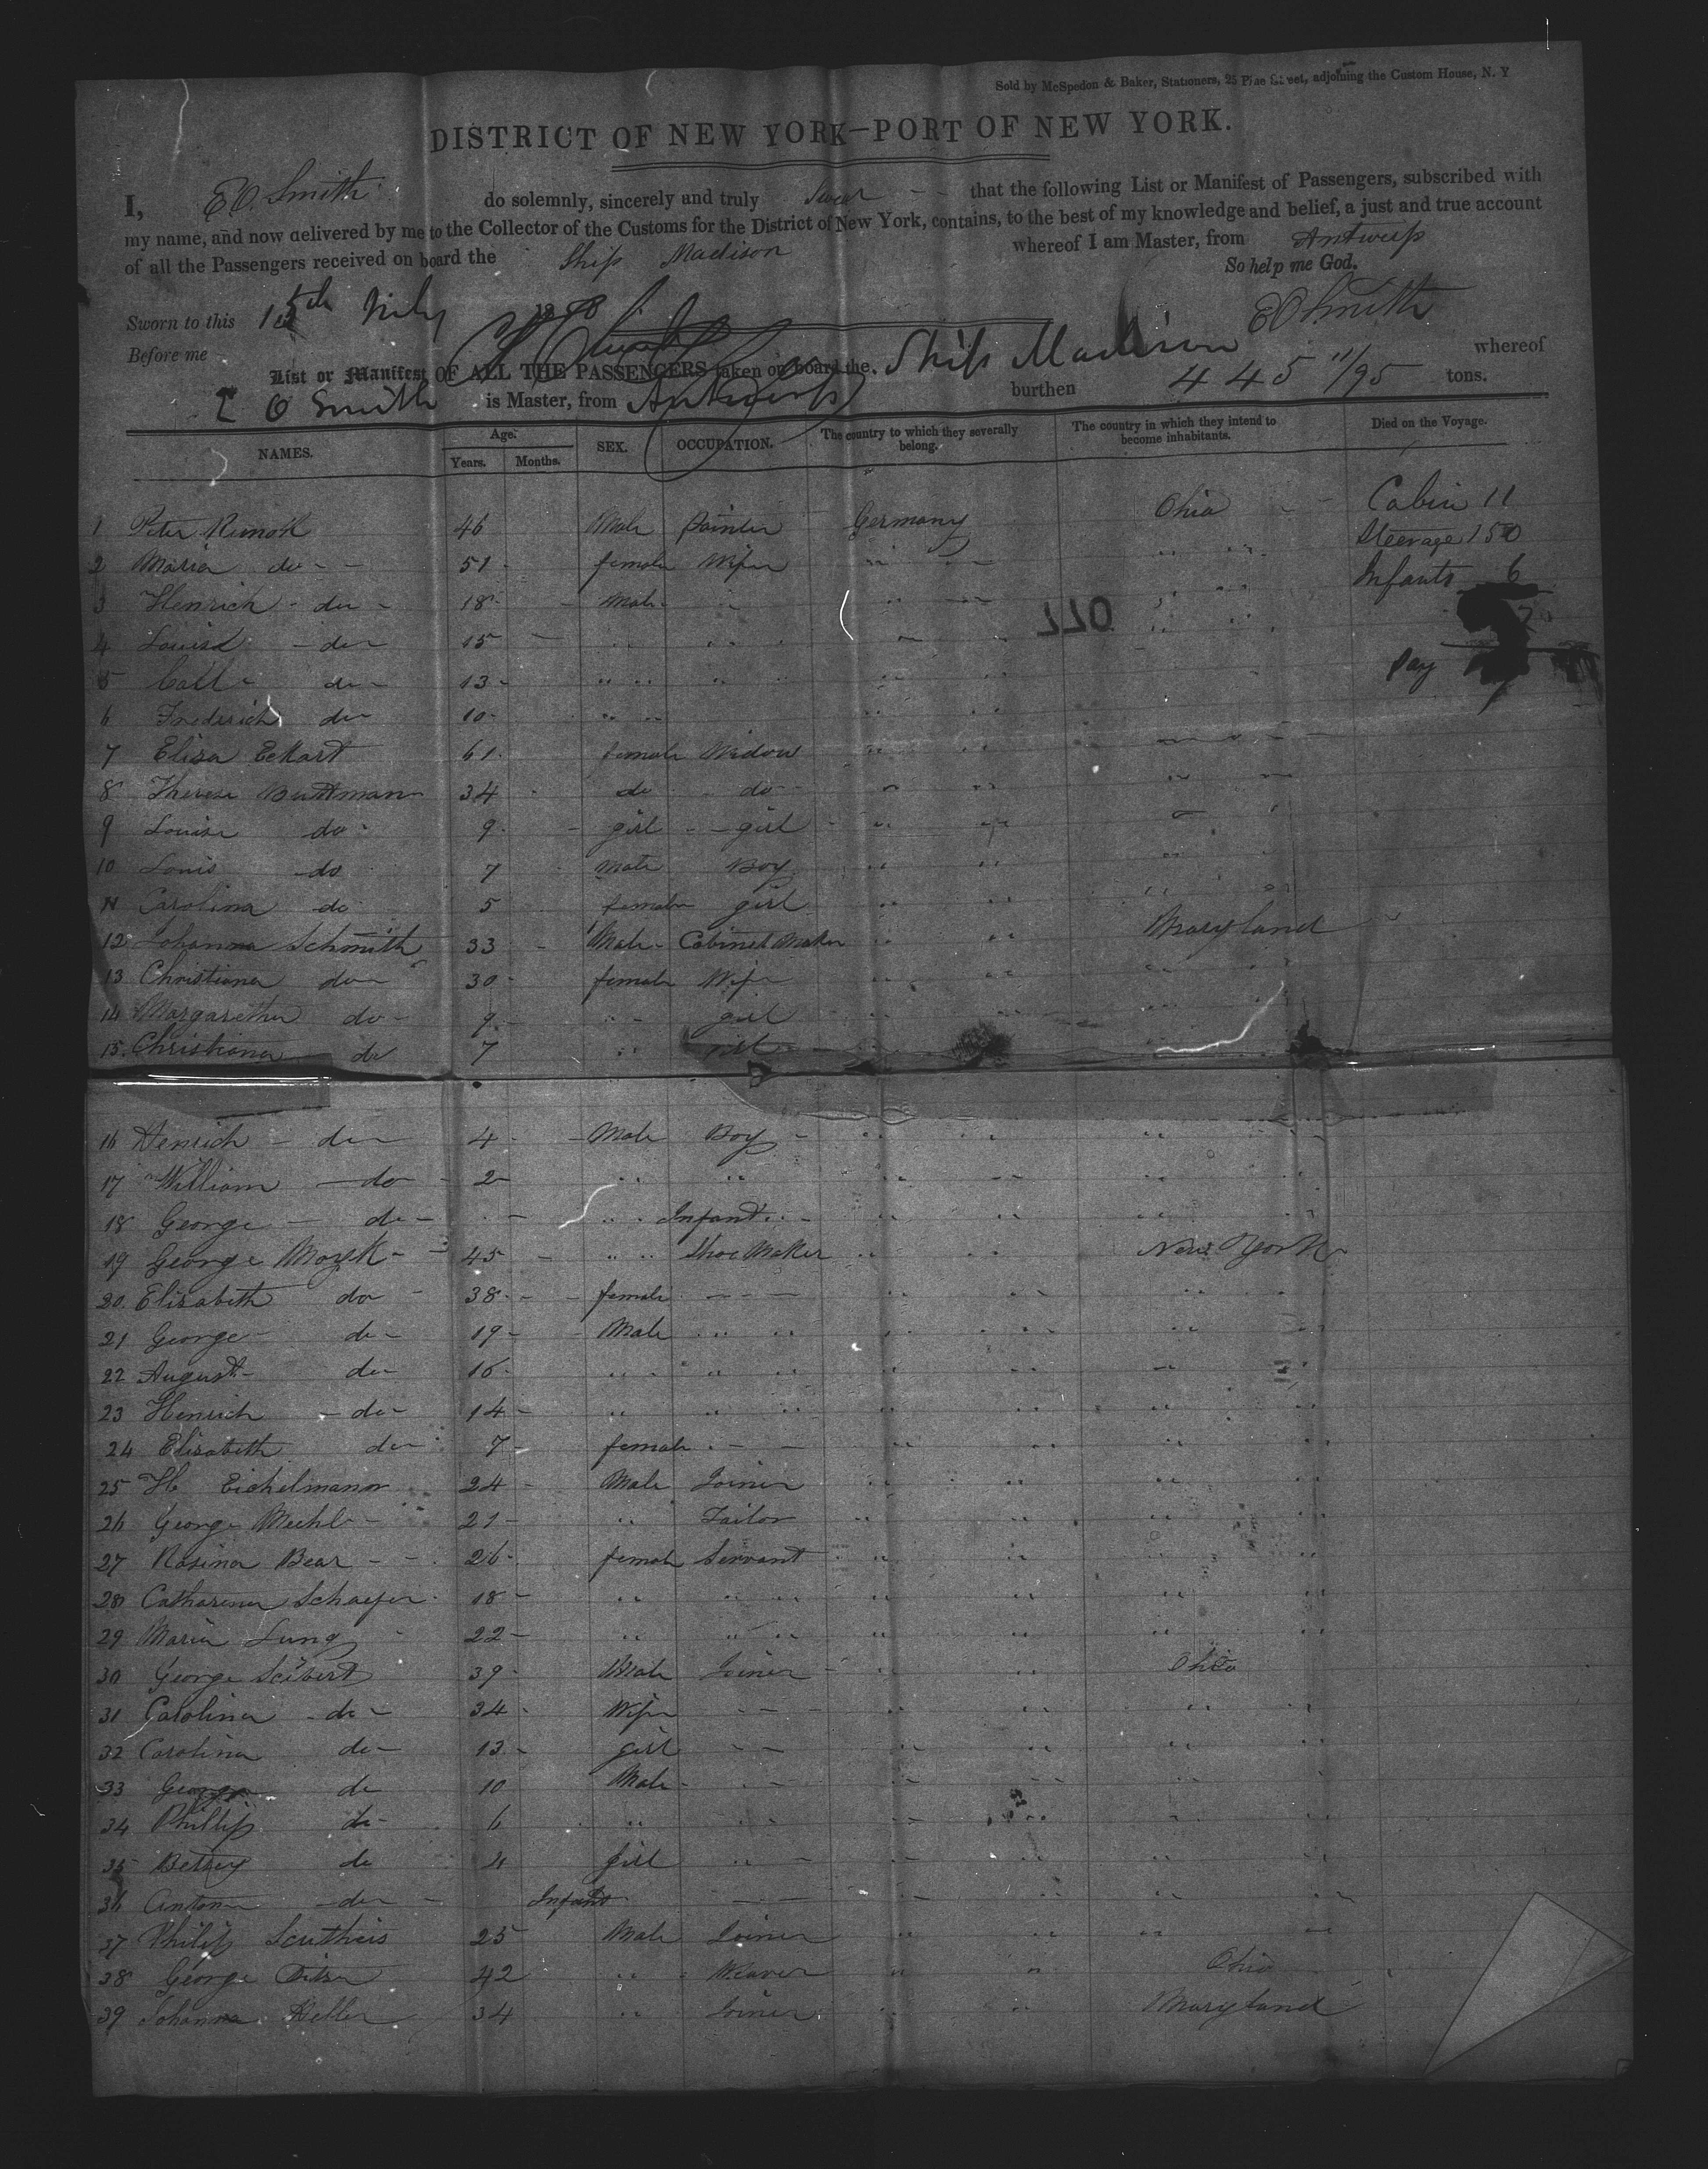 Sold by McSpedon & Baker, Stationers, 25 Pine Street, adjoining the Custom House, N. Y
DISTRICT OF NEW YORK—PORT OF NEW YORK.
I, E O Smith do solemnly, sincerely and truly Swear that the following List or Manifest of Passengers, subscribed with
my name, and now delivered by me to the Collector of the Customs for the District of New York, contains, to the best of my knowledge and belief, a just and true account
of all the Passengers received on board the Ship Madison whereof I am Master, from Antwerp
So help me God.
Sworn to this 15th July 18
E O Smith
Before me
List or Manifest OF ALL THE PASSENGERS taken on board the Ship Madison whereof
E O Smith is Master, from Antwerp burthen 445 11/95 tons.
NAMES. Age. Years. Months. SEX. OCCUPATION. The country to which they severally belong. The country in which they intend to become inhabitants. Died on the Voyage.
Cabin 11
1 Peter 46 Male Painter Germany Ohio
Steerage 150
2 Maria do 51 female Wife " " " "
Infants 6
3 Heinrich do 18 Male " " " " "
770
4 Louisa do 15 " " " " " " " "
Pay
5 Carl do 13 " " " " " " " "
6 Frederich do 10 " " " "
7 Elisa Eckart 61 female Widow " "
8 Therese 34 do do " "
9 Louisa do 9 girl girl " "
10 Louis do 7 Male Boy " " "
11 Carolina do 5 female girl " " " "
12 Johanna Schmith 33 Male Cabinet Maker " " Maryland
13 Christiana do 30 female Wife " " " "
14 Margaretha do 9 " girl " " "
15 Christiana do 7 " girl
16 Henrich do 4 Male Boy " " " "
17 William do 2 " " " " " "
18 George do " Infant " " " "
19 George 45 " " Shoe Maker " " New York
20 Elisabeth do 38 female " " " "
21 George do 19 Male " " " " " "
22 August do 16 " " " " " " "
23 Henrich do 14 " " " " " " "
24 Elisabeth do 7 female " " " "
25 H Eichelmann 24 Male Joiner " " " "
26 George Mechl 21 " Tailor " " " "
27 Rosina Bear 26 female Servant " " " "
28 Catharina Schaefer 18 " " " " " " "
29 Maria Lung 22 " " " " " " "
30 George Seibert 39 Male Joiner " " Ohio
31 Carolina do 34 Wife " " " "
32 Carolina do 13 girl " " " "
33 George do 10 Male " " " "
34 Phillip do 6 " " " " " "
35 Betsey do 4 girl " " " " "
36 Anton do Infant " " " "
37 Philip 25 Male Joiner " " " "
38 George 42 " Weaver " " Ohio
39 Johanna Heller 34 " Joiner " " Maryland